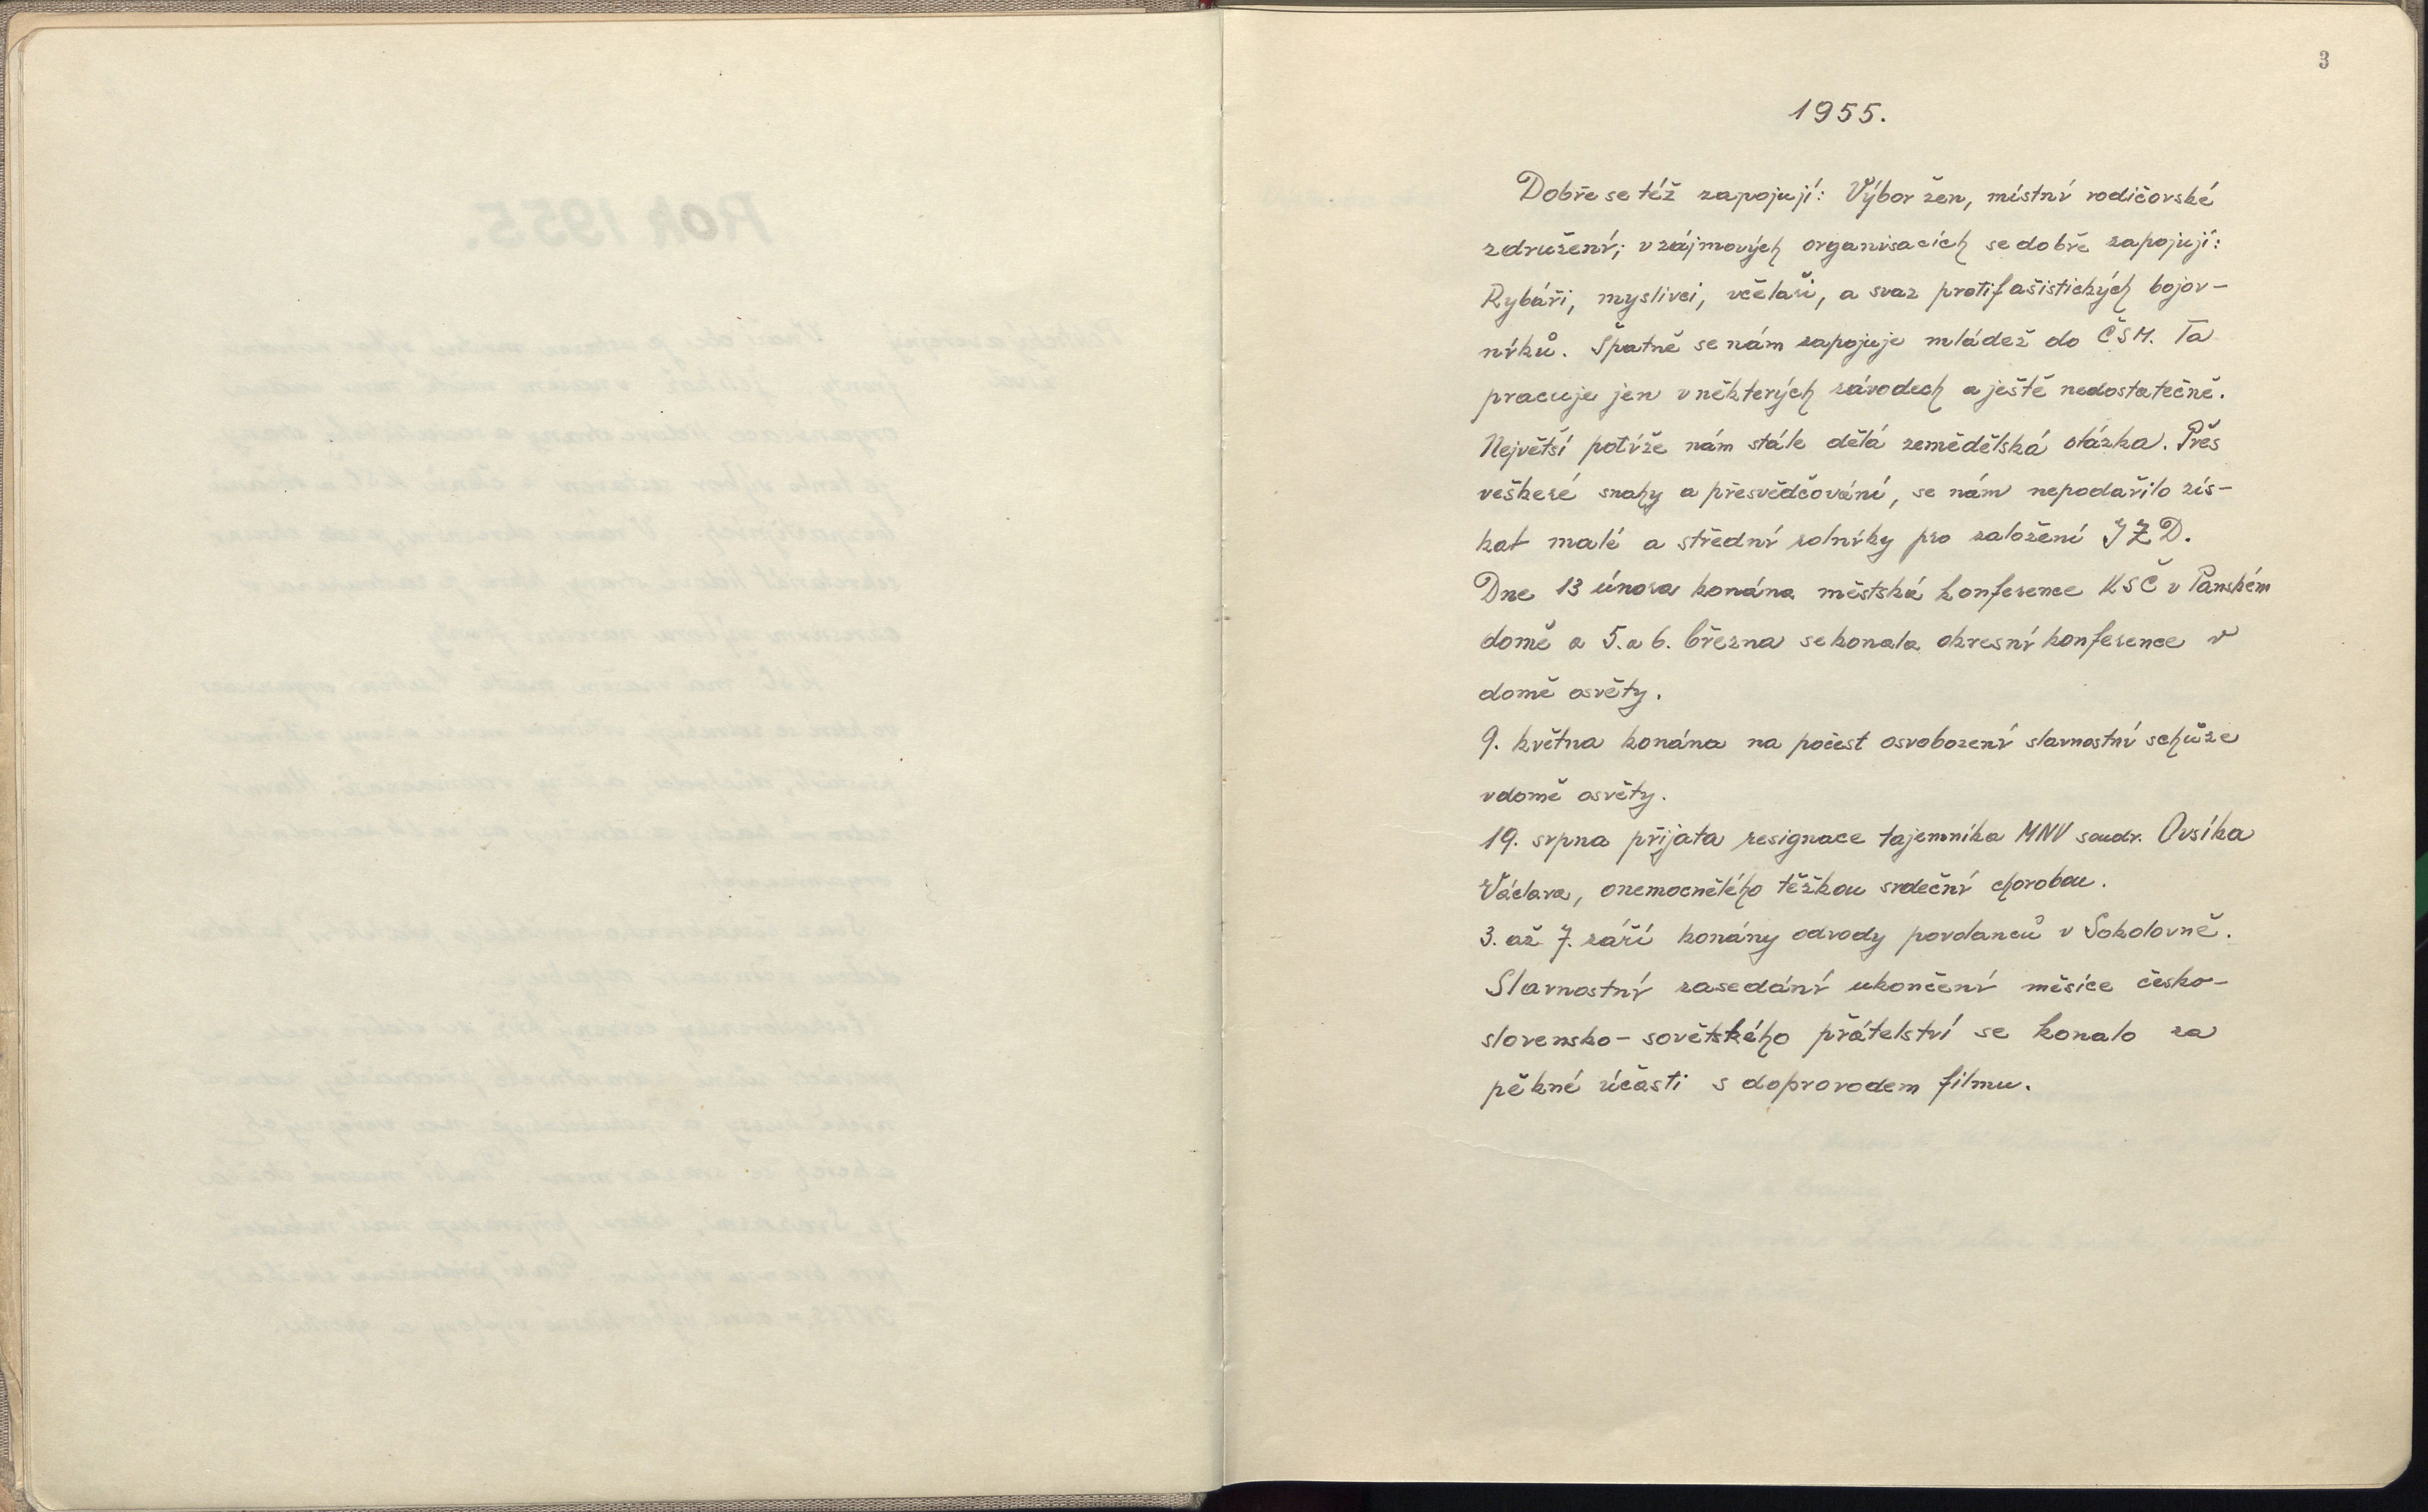 3
1955.
Dobře se též zapojují: Výbor žen, místní rodičovské
združení; v zájmových organisacích se dobře zapojují:
Rybáři, myslivci, včelaři, a svaz protifašistických bojov-
níků. Špatně se nám zapojuje mládež do ČSM. Ta
pracuje jen v některých závodech a ještě nedostatečně.
Největší potíže nám stále dělá zemědělská otázka. Přes
veškeré snahy a přesvědčování, se nám nepodařilo zís-
kat malé a střední rolníky pro založení JZD.
Dne 13 února konána městská konference KSČ v Panském
domě a 5. a 6. března se konala okresní konference v
domě osvěty.
9. května konána na počest osvobození slavnostní schůze
v domě osvěty.
19. srpna přijata resignace tajemníka MNV soudr. Ovsíka
Václava, onemocnělého těžkou srdeční chorobou.
3. až 7. září konány odvody povolanců v Sokolovně.
Slavnostní zasedání ukončení měsíce česko-
slovensko-sovětského přátelství se konalo za
pěkné účasti s doprovodem filmu.